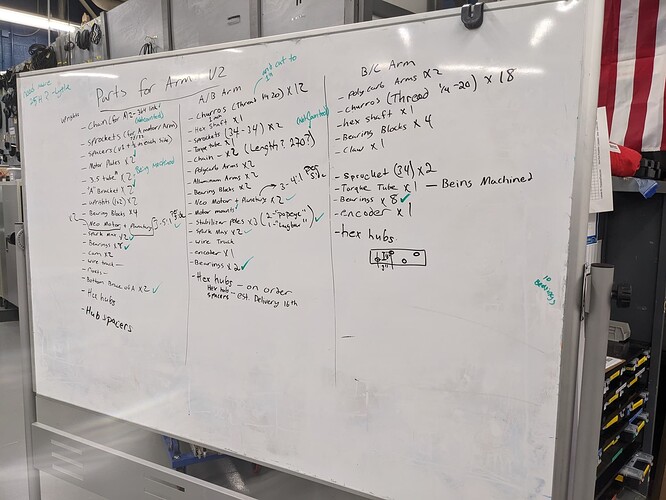 Parts for Arm V2
need more
25H
Wrights
- Chain (for A/2
- Sprockets (for A motors/Arm)
- Spacers
- Motor Plates x2
Being Machined
- 3.5 tube" x2
- "A" Bracket x2
- Wrights (1x2) x2
- Bearing Blocks x4
x2
- Neo Motor + Planetary
- Spark Max x2 ✓
- Bearings x8 ✓
- Cam x2
- wire track —
- Bottom Brace USA x2 ✓
- Hex hubs
- Hub spacers
A/B Arm
- Churros (Thread 1/4 20) x 12
- Hex Shaft x 1
- Sprockets (34-34) x 2
- Torque tube x 1
- Chain - x2 (Length? 270?)
- Polycarb Arms x2
- Aluminum Arms x2
- Bearing Blocks x2
- Neo Motor + Planetary x2
3-4:1
- Motor mount
- Stabilizer poles x3 (2-"Popeye" ✓
1-
- Spark Max x2 ✓
- wire Track
- encoder x 1
- Bearings x2 ✓
- Hex hubs — on order
Hex hub spacers — est. Delivery 16th
B/C Arm
- Polycarb Arms x2
- Churros (Thread 1/4-20) x 18
- hex shaft x 1
- Bearing Blocks x 4
- Claw x 1
- Sprocket (34) x 2
- Torque Tube x 1 — Being Machined
- Bearings x 8 ✓
- encoder x 1
- hex hubs
10